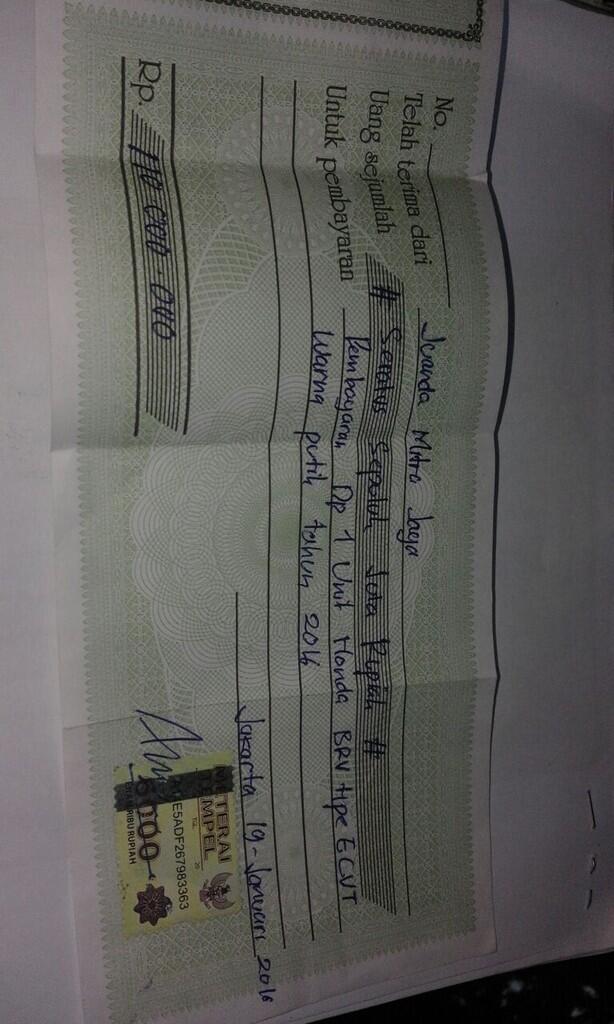 No.
Telah terima dari Juanda Mitra Jaya
Uang sejumlah # Seratus Sepuluh Juta Rupiah #
Untuk pembayaran Pembayaran Dp 1 Unit Honda BRV tipe ECVT
Warna putih tahun 2016
Jakarta 19-Januari 2016
Rp. 110.000.000
METERAI
TEMPEL
TGL. 20
E5ADF267983363
6000
ENAM RIBU RUPIAH